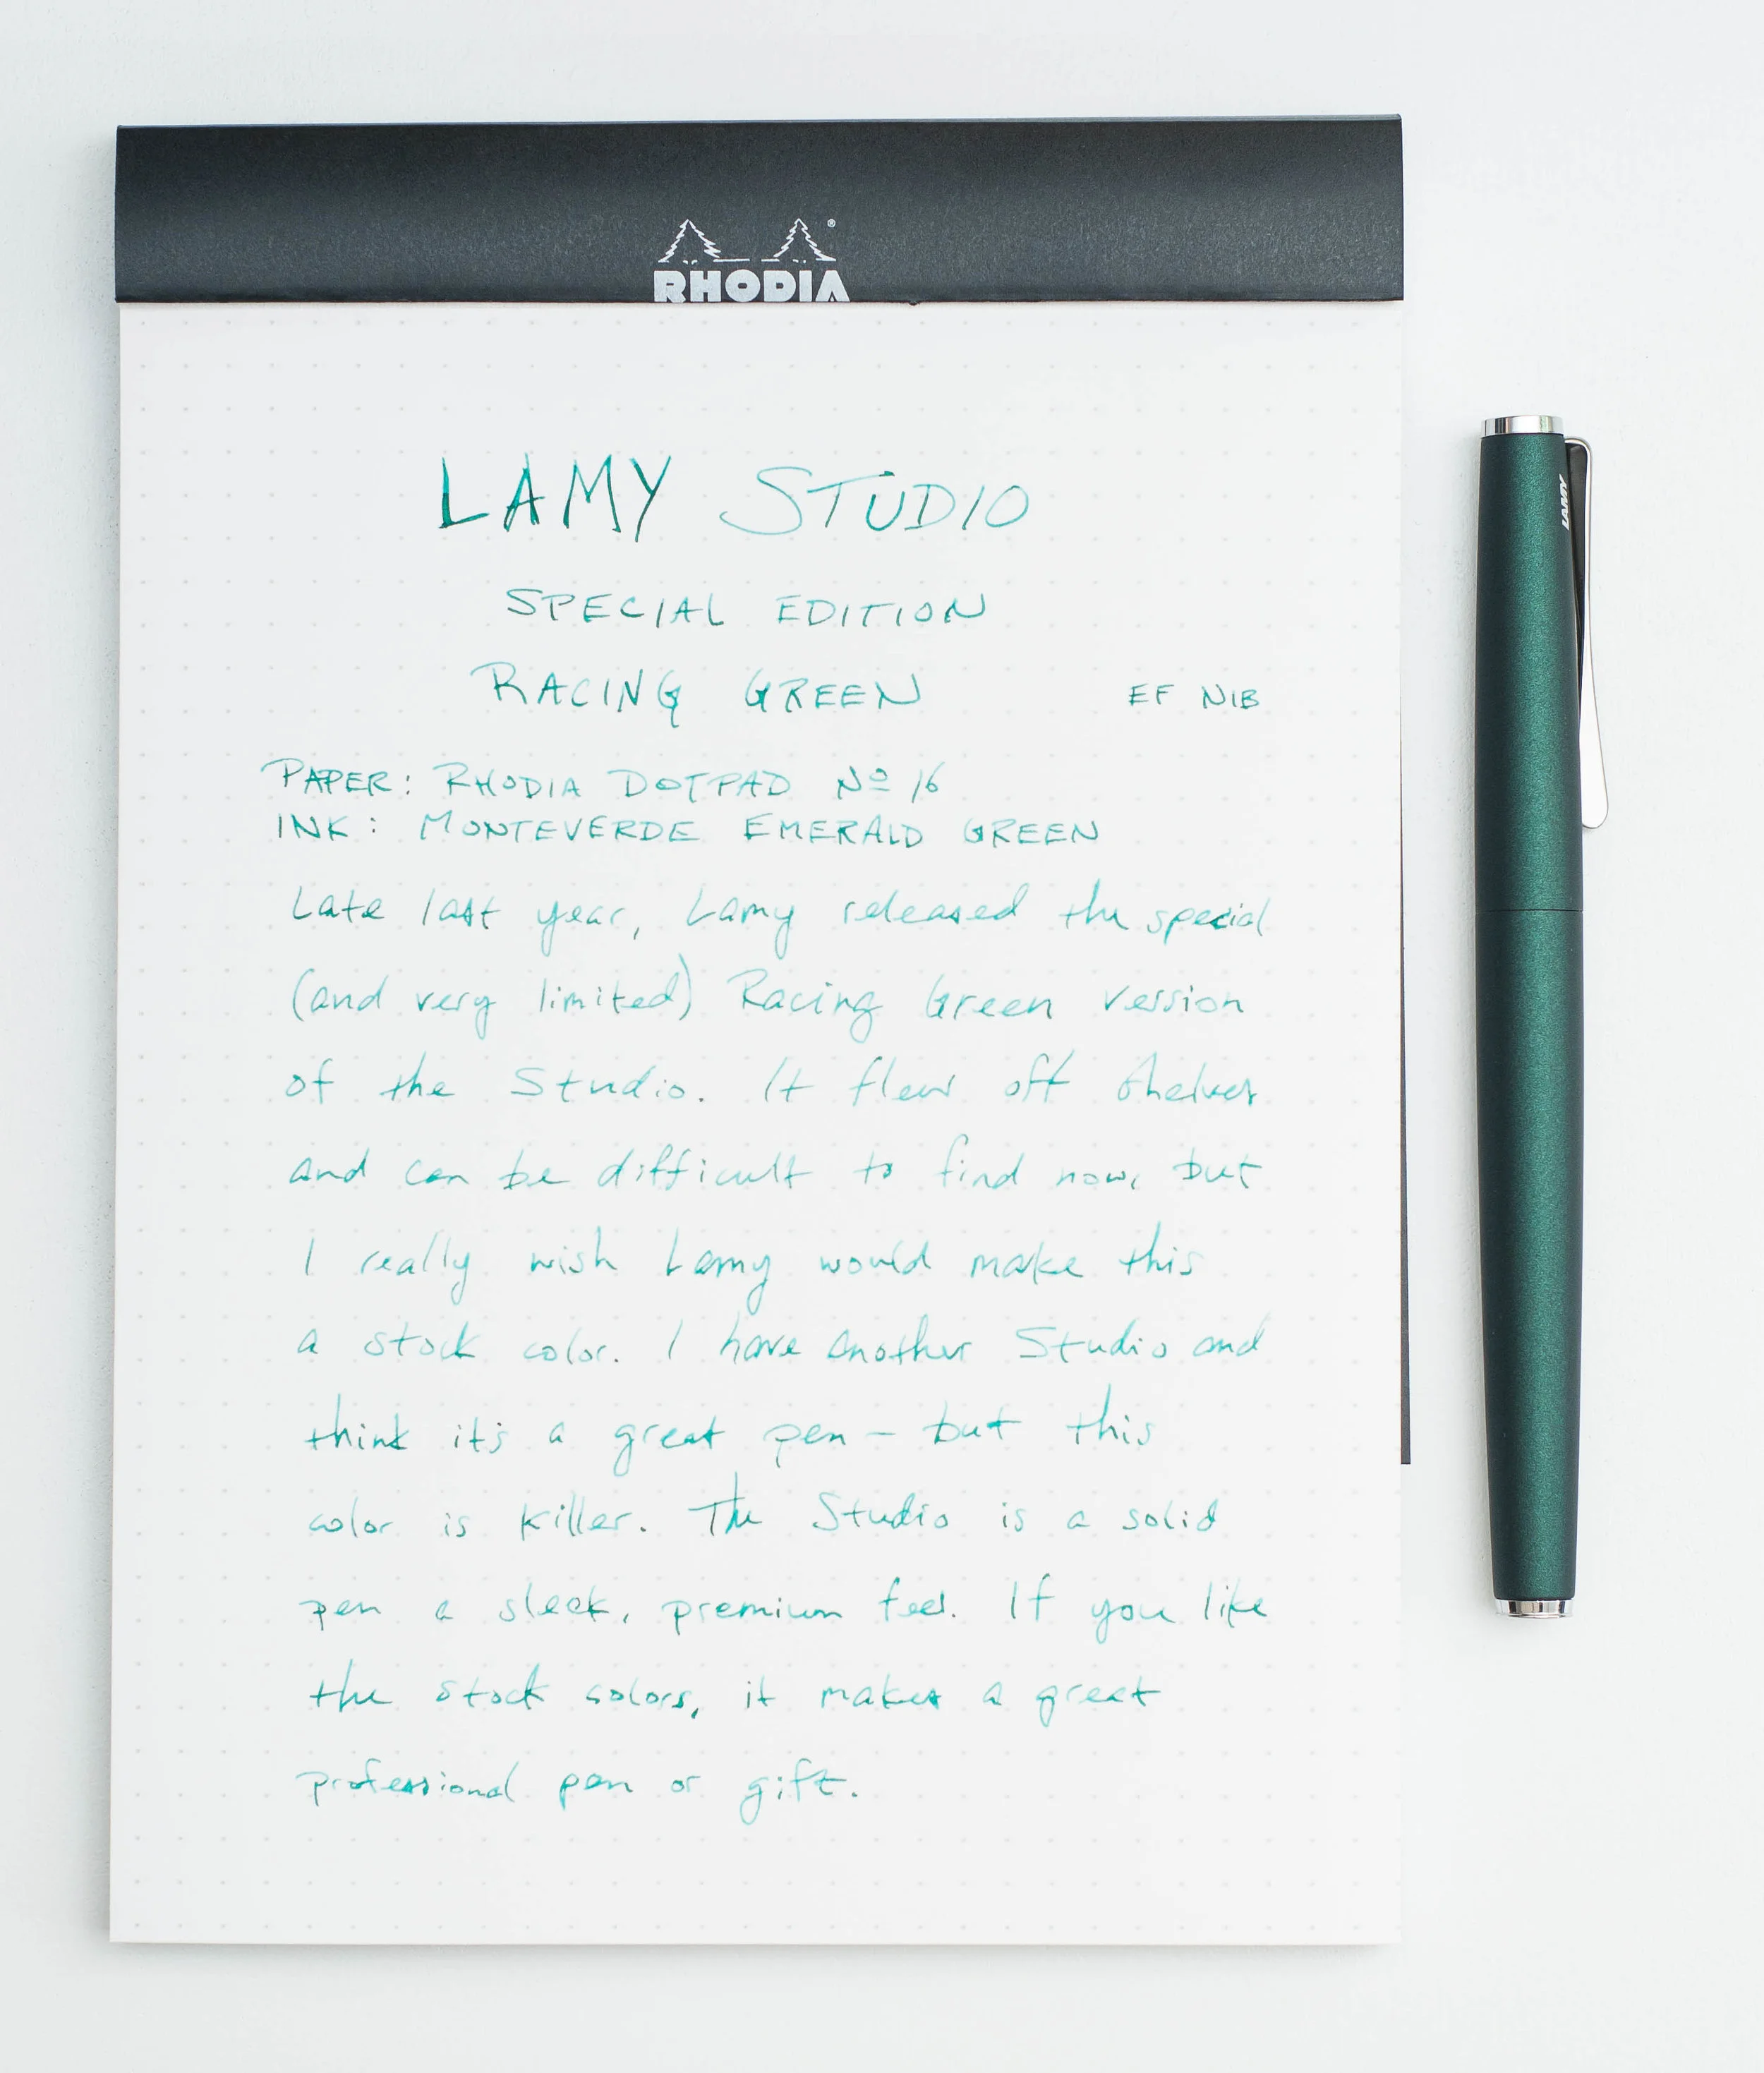 RHODIA®
LAMY STUDIO
SPECIAL EDITION
RACING GREEN EF NIB
PAPER: RHODIA DOTPAD Nº 16
INK: MONTEVERDE EMERALD GREEN
Late last year, Lamy released the special
(and very limited) Racing Green version
of the Studio. It flew off shelves
and can be difficult to find now, but
I really wish Lamy would make this
a stock color. I have another Studio and
think it's a great pen – but this
color is killer. The Studio is a solid
pen a sleek, premium feel. If you like
the stock colors, it makes a great
professional pen or gift.
LAMY